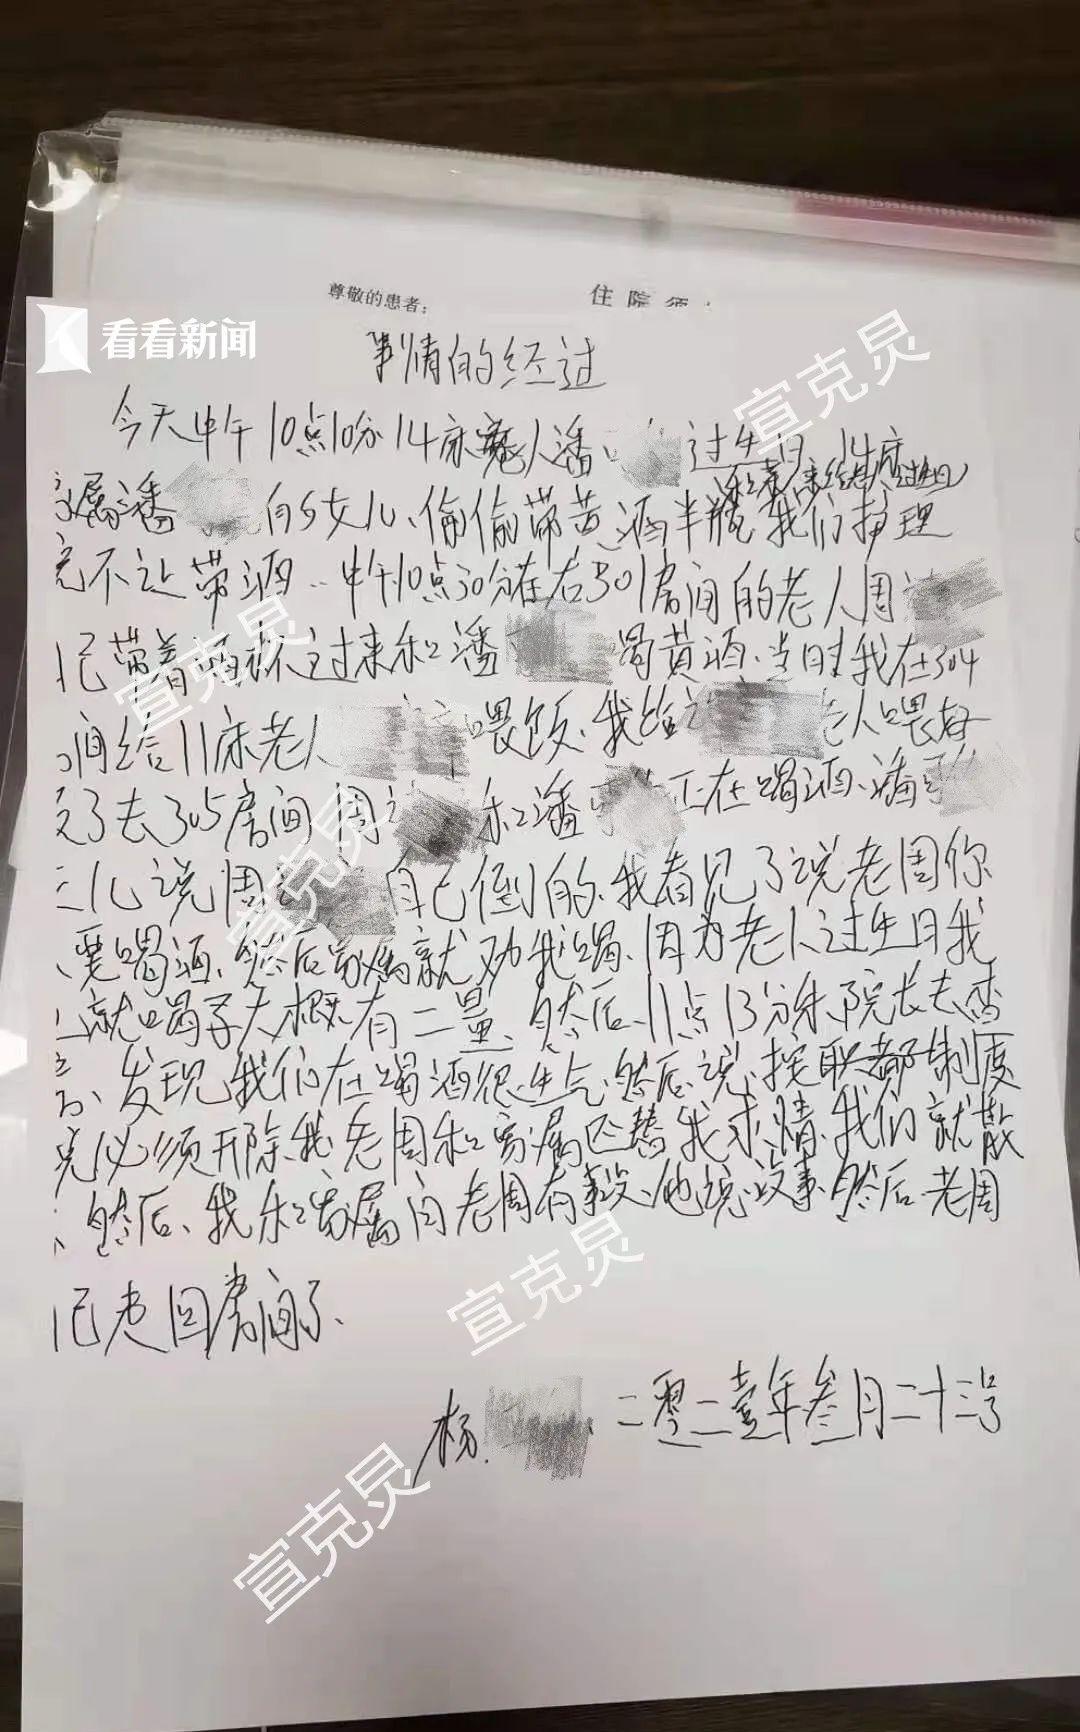 尊敬的患者：
住院须
看看新闻
事情的经过
今天中午10点10分14床老人潘 过生日 14床
家属潘 的女儿、偷偷带黄酒半瓶 我们护理
院不让带酒、中午10点30分左右301房间的老人周
自己带着酒杯过来和潘 喝黄酒、当时我在304
房间给11床老人 喂饭、我给 老人喂好
完了去305房间周 和潘 正在喝酒、潘
女儿说周 自己倒的、我看见了说老周你
要喝酒、然后家属就劝我喝、因为老人过生日我
就喝了大概有二量、然后、11点13分朱院长去查
发现我们在喝酒很生气、然后说、按职都制度
必须开除我老周和家属还替我求情、我们就散
然后、我和家属问老周有事没、他说没事、然后老周
自己走回房间了、
杨 二零二壹年叁月二十三号
宣克炅
宣克炅
宣克炅
宣克炅
宣克炅